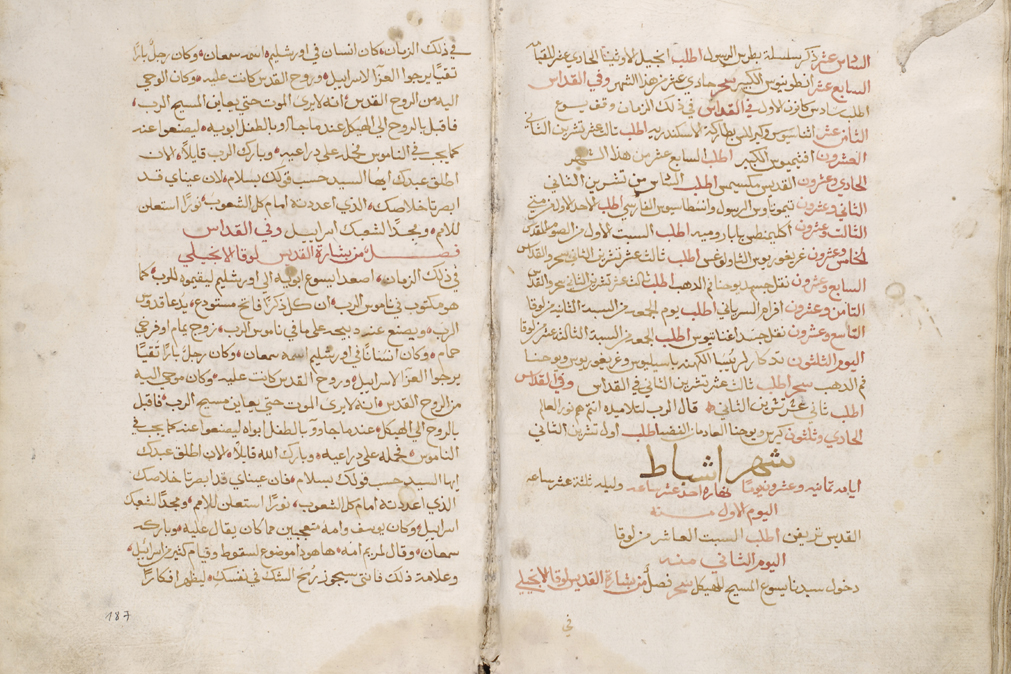 السادس عشر ذكر سلسلة بطرس الرسول اطلب انجيل الاوثينا الحادي عشر للقيامه
السابع عشر انطونيوس الكبير سحر حادي عشر هذا الشهر وفي القداس
اطلب سادس كانون الاول في القداس في ذلك الزمان وقف يسوع
الثامن عشر اثناسيوس وكيرللس بطاركة الاسكندريه اطلب ثالث عشر تشرين الثاني
العشرون افتيميوس الكبير اطلب السابع عشر من هذا الشهر
الحادي وعشرون القديس مكسيمس اطلب الثامن من تشرين الثاني
الثاني وعشرون تيموثاوس الرسول وانسطاسيوس الفارسي اطلب الاحد الاول من متى
الثالث وعشرون اكليمنطس بابا روميه اطلب السبت الاول من الصوم المقدس
الخامس وعشرون غريغوريوس الثاولوغس اطلب ثالث عشر تشرين الثاني سحر والقداس
السابع وعشرون نقل جسد يوحنا فم الدهب اطلب ثالث عشر تشرين الثاني سحر والقداس
الثامن وعشرون افرام السرياني اطلب يوم الجمعه من السبة الثانيه من لوقا
التاسع وعشرون نقل جسد اغناتيوس اطلب الجمعه من السبة الثالثة عشر من لوقا
اليوم الثلثون تدكار لريسا الكهنه باسيليوس وغريغوريوس ويوحنا
فم الدهب سحر اطلب ثالث عشر تشرين الثاني في القداس وفي القداس
اطلب ثاني عشر تشرين الثاني قال الرب لتلاميذه انتم هم نور العالم
الحادي وثلثون كير ويوحنا العادمان الفضه اطلب اول تشرين الثاني
شهر اشباط
ايامه ثمانيه وعشرون يومًا نهاره احد عشر ساعه وليله ثلثة عشر ساعه
اليوم الاول منه
القديس تريفن اطلب السبت العاشر من لوقا
اليوم الثاني منه
دخول سيدنا يسوع المسيح للهيكل سحر فصل من بشارة القديس لوقا الانجيلي
في
في ذلك الزمان كان انسان في اورشليم اسمه سمعان وكان رجل بارًا
تقيًا يرجوا العزا لاسراييل وروح القدس كانت عليه وكان الوحي
اليه من الروح القدس انه لا يرى الموت حتى يعاين المسيح الرب
فاقبل بالروح الى الهيكل عندما جاوا بالطفل ابويه ليصنعوا عنه
كما يجب في الناموس فحمله على دراعيه وبارك الرب قايلًا الان
اطلق عبدك ايها السيد حسب قولك بسلام لان عيناي قد
ابصرتا خلاصك الذي اعددته امام كل الشعوب نورًا استعلن
للامم ومجدًا لشعبك اسراييل وفي القداس
فصل من بشارة القديس لوقا الانجيلي
في ذلك الزمان اصعد ليسوع ابويه الى اورشليم ليقيموه للرب كما
هو مكتوب في ناموس الرب ان كل ذكرًا فاتح مستودع يدعا قدوس
الرب ويصنع عنه دبيحه على ما في ناموس الرب زوج يمام او فرخي
حمام وكان انسانًا في اورشليم اسمه سمعان وكان رجل بارًا تقيًا
يرجوا العزا لاسراييل وروح القدس كانت عليه وكان موحي اليه
من الروح القدس انه لا يرى الموت حتى يعاين مسيح الرب فاقبل
بالروح الى الهيكل عندما جاوو بالطفل ابواه ليصنعوا عنه كما يجب في
الناموس فحمله على دراعيه وبارك الله قايلًا الان اطلق عبدك
ايها السيد حسب قولك بسلام فان عيناي قد ابصرتا خلاصك
الذي اعددته امام كل الشعوب نورًا استعلن للامم ومجدًا لشعبك
اسراييل وكان يوسف وامه متعجبين مما كان يقال عليه وباركه
سمعان وقال لمريم امه ها هودا موضوع لسقوط وقيام كثير من اسراييل
وعلامة ذلك فانتي سيجوز رمح الشك في نفسك ليظهر افكارًا
187